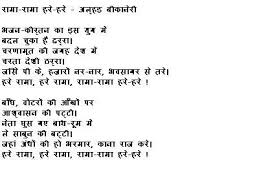 रामा-रामा हरे-हरे - अल्हड़ बीकानेरी
भजन-कीर्तन का इस युग में
बदल चूका हैं ढर्रा।
चरणामृत की जगह देश में
चरता देशी ठर्रा।
जिसे पी के, हजारों नर-नार, भवसागर से तरे।
हरे रामा, हरे रामा, रामा-रामा हरे-हरे !
बाँधे, वोटरों की आँखों पर
आश्वासन की पट्टी।
नेता घुस गए बाथ-रूम में
ले साबुन की बट्टी।
जहां अंधों की हो भरमार, काना राज करे।
हरे रामा, हरे रामा, रामा-रामा हरे-हरे !